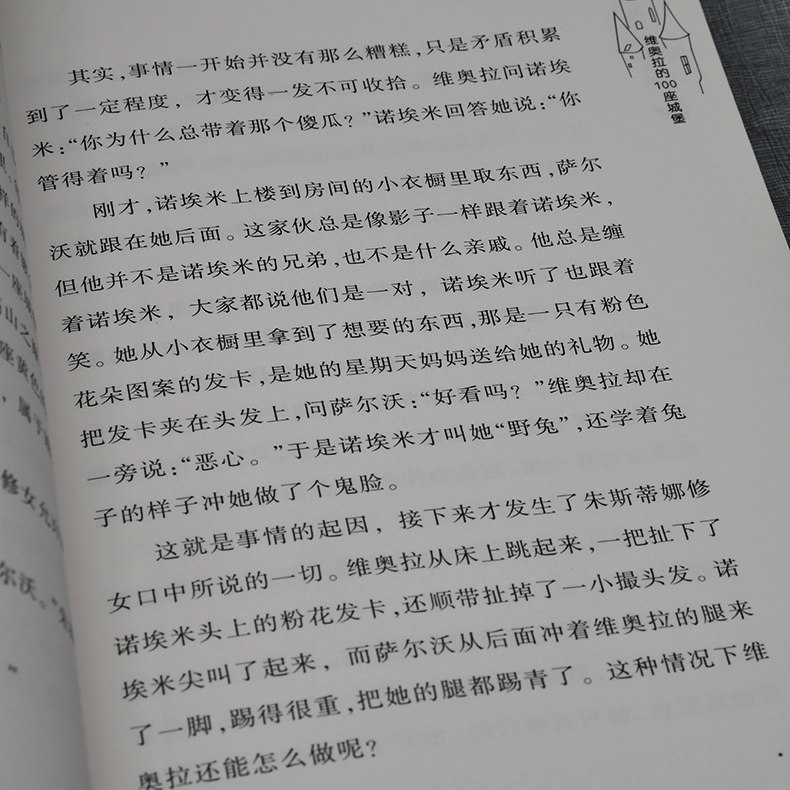 维奥拉的100座城堡
其实,事情一开始并没有那么糟糕,只是矛盾积累
到了一定程度，才变得一发不可收拾。维奥拉问诺埃
米:“你为什么总带着那个傻瓜?”诺埃米回答她说:“你
管得着吗？”
刚才,诺埃米上楼到房间的小衣橱里取东西,萨尔
沃就跟在她后面。这家伙总是像影子一样跟着诺埃米,
但他并不是诺埃米的兄弟,也不是什么亲戚。他总是缠
着诺埃米，大家都说他们是一对，诺埃米听了也跟着
笑。她从小衣橱里拿到了想要的东西,那是一只有粉色
花朵图案的发卡,是她的星期天妈妈送给她的礼物。她
把发卡夹在头发上,问萨尔沃:“好看吗？”维奥拉却在
一旁说:“恶心。”于是诺埃米才叫她“野兔”,还学着兔
子的样子冲她做了个鬼脸。
这就是事情的起因，接下来才发生了朱斯蒂娜修
女口中所说的一切。维奥拉从床上跳起来,一把扯下了
诺埃米头上的粉花发卡,还顺带扯掉了一小撮头发。诺
埃米尖叫了起来，而萨尔沃从后面冲着维奥拉的腿来
了一脚,踢得很重,把她的腿都踢青了。这种情况下维
奥拉还能怎么做呢?
修女允
尔沃。”